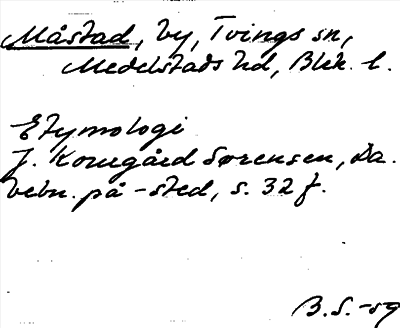 Måstad, by, Tvings sn,
Medelstads hd, Blek. l.
Etymologi
J. Kousgård Sørensen, Da.
bebn. på -sted, s. 32 f.
B.S. -59